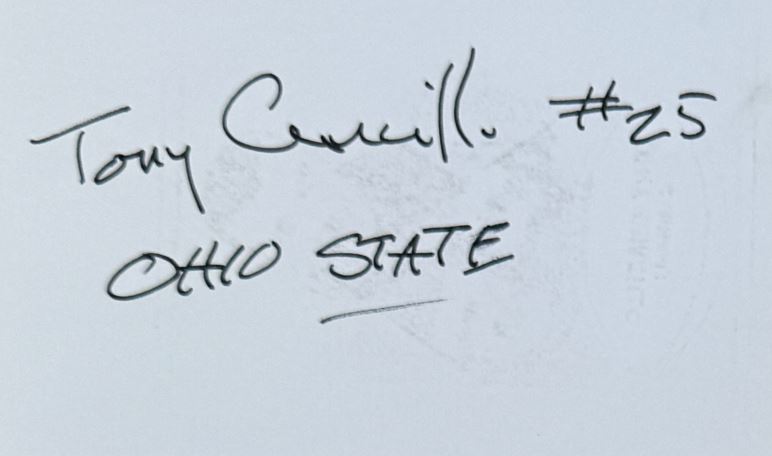 Tony #25
OHIO STATE